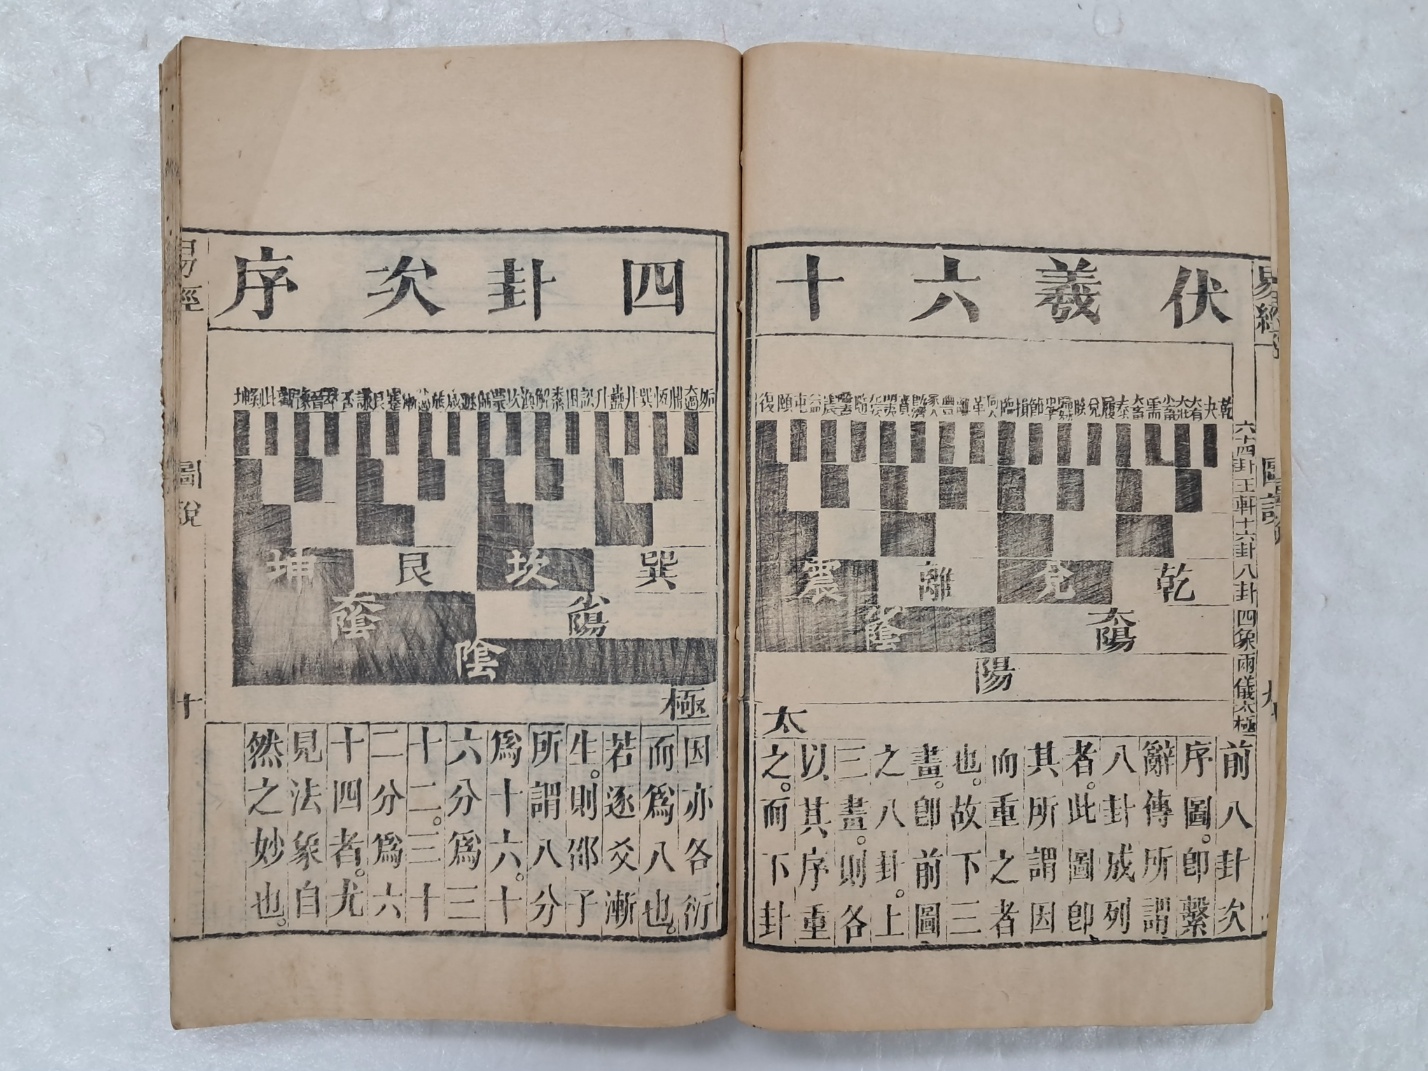 伏羲六十
四卦次序
易經
圖說
六十四卦三十二卦十六卦八卦四象兩儀太極
乾夬大有大壯小畜需大畜泰履兌睽歸妹中孚節損臨同人革離豐家人既濟賁明夷无妄隨噬嗑震益屯頤復
乾
兌
離
震
太陽
少陰
陽
太
前八卦次
序圖。卽繫
辭傳所謂
八卦成列
者。此圖卽
其所謂因
而重之者
也。故下三
畫。卽前圖
之八卦。上
三畫。則各
以其序重
之。而下卦
姤大過鼎恒巽井蠱升訟困未濟解渙坎蒙師遯咸旅小過漸蹇艮謙否萃晉豫觀比剝坤
巽
坎
艮
坤
少陽
太陰
陰
極
因亦各衍
而爲八也。
若逐爻漸
生。則邵子
所謂八分
爲十六。十
六分爲三
十二。三十
二分爲六
十四者。尤
見法象自
然之妙也。
易經
圖說
十